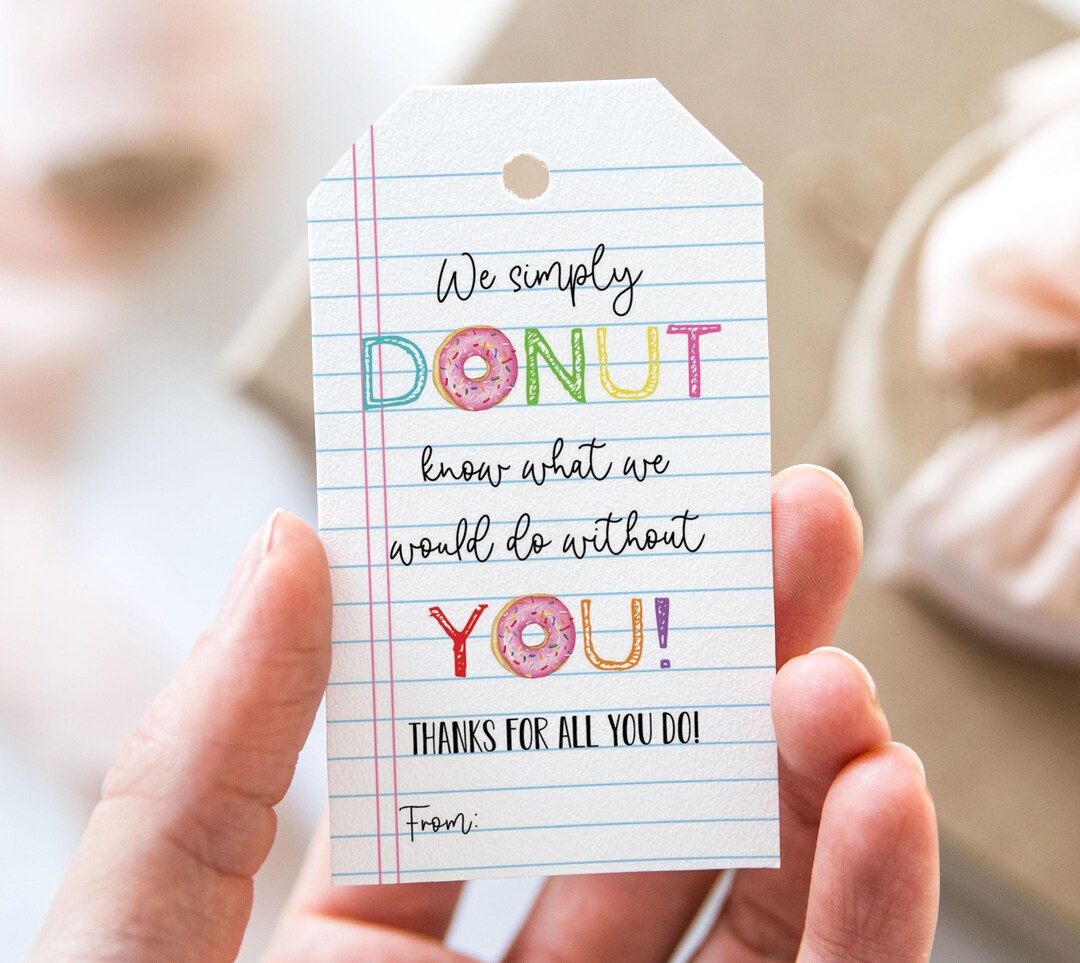 We simply
DONUT
know what we
would do without
YOU!
THANKS FOR ALL YOU DO!
From: